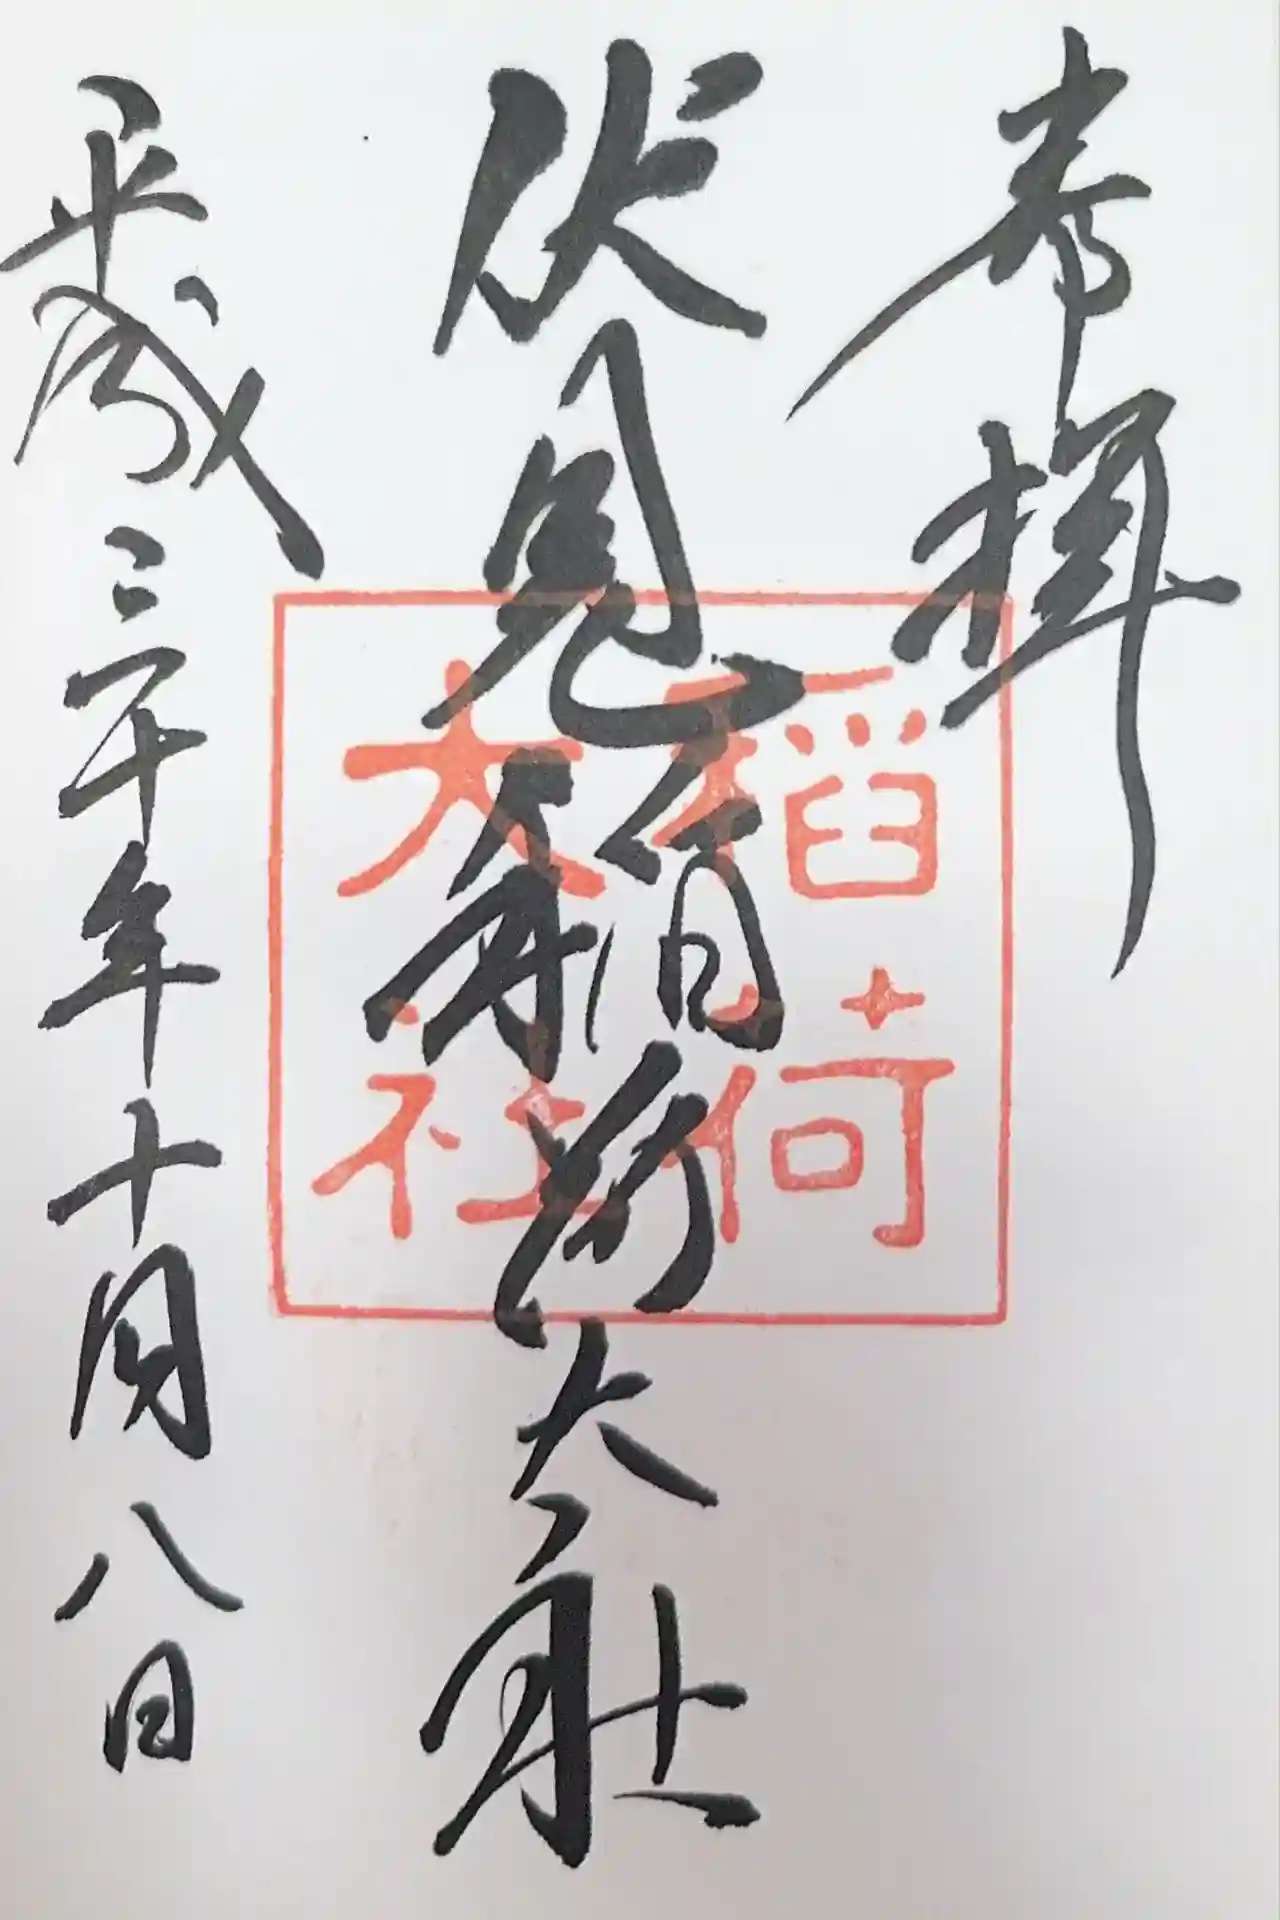 奉拝
伏見稲荷大社
平成三十年十月八日
稻荷
大社